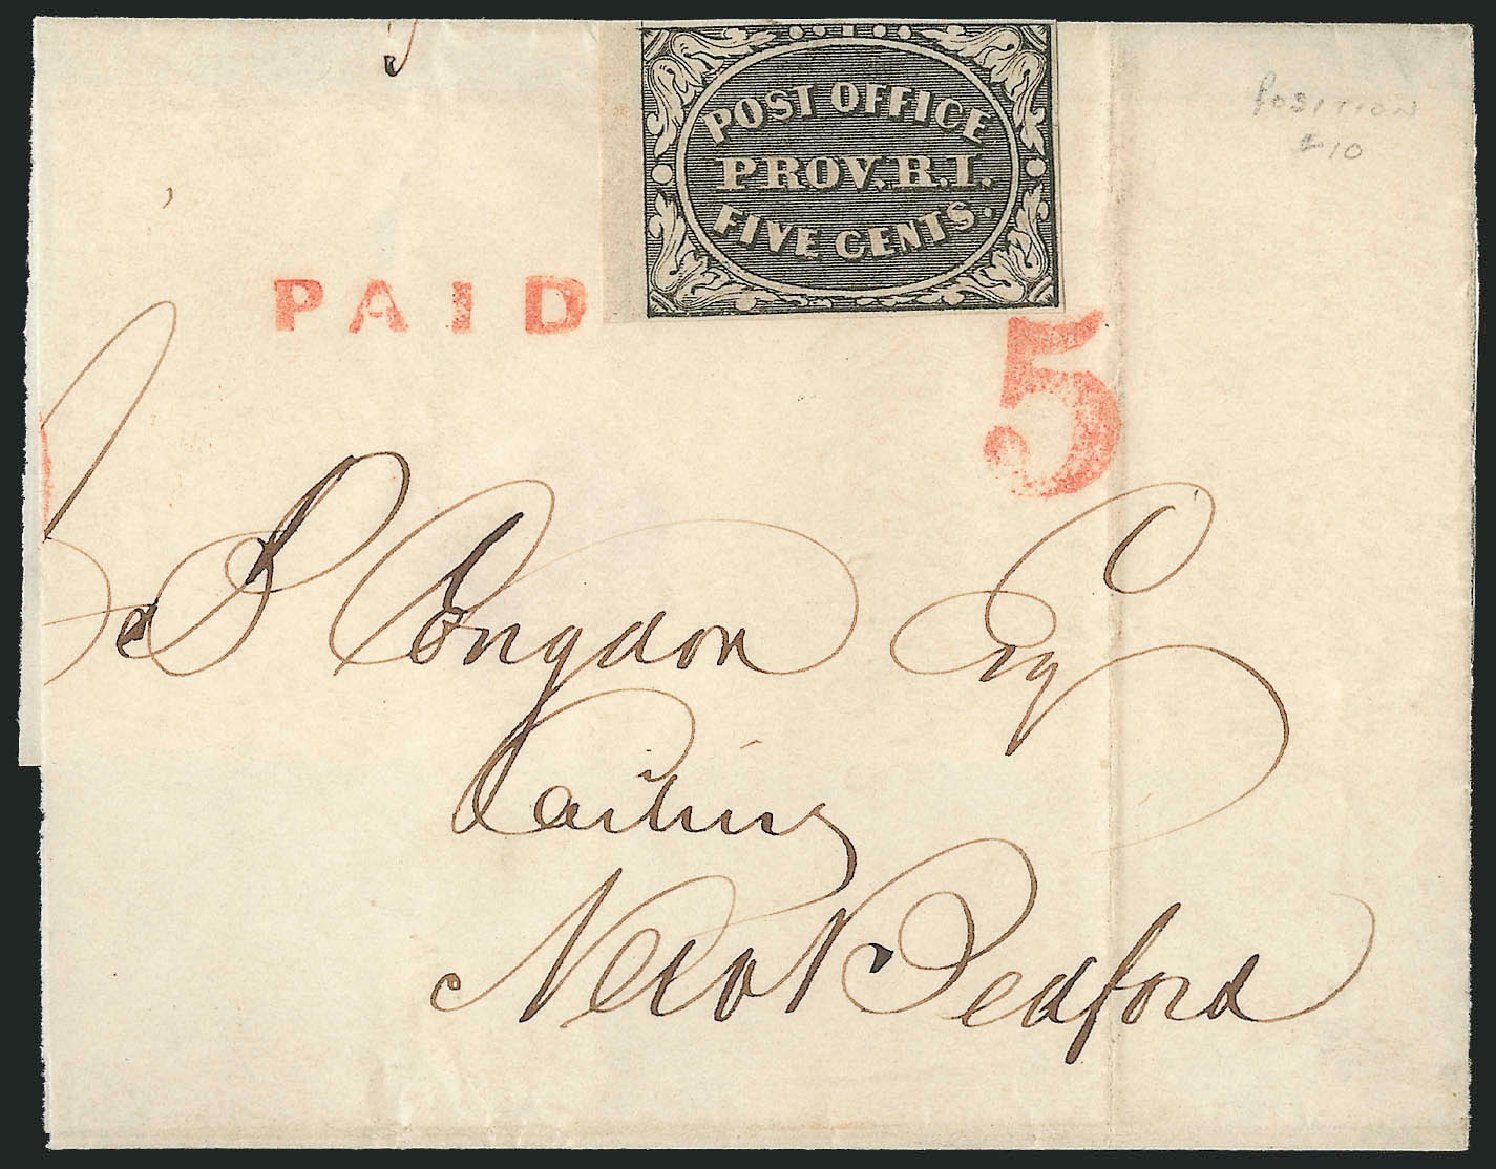 POST OFFICE
PROV. R.I.
FIVE CENTS.
POSITION
#10
PAID
5
Congdon Esq
New Bedford